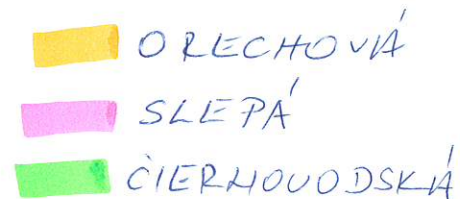 ORECHOVÁ
SLEPÁ
ČIERNOVODSKÁ